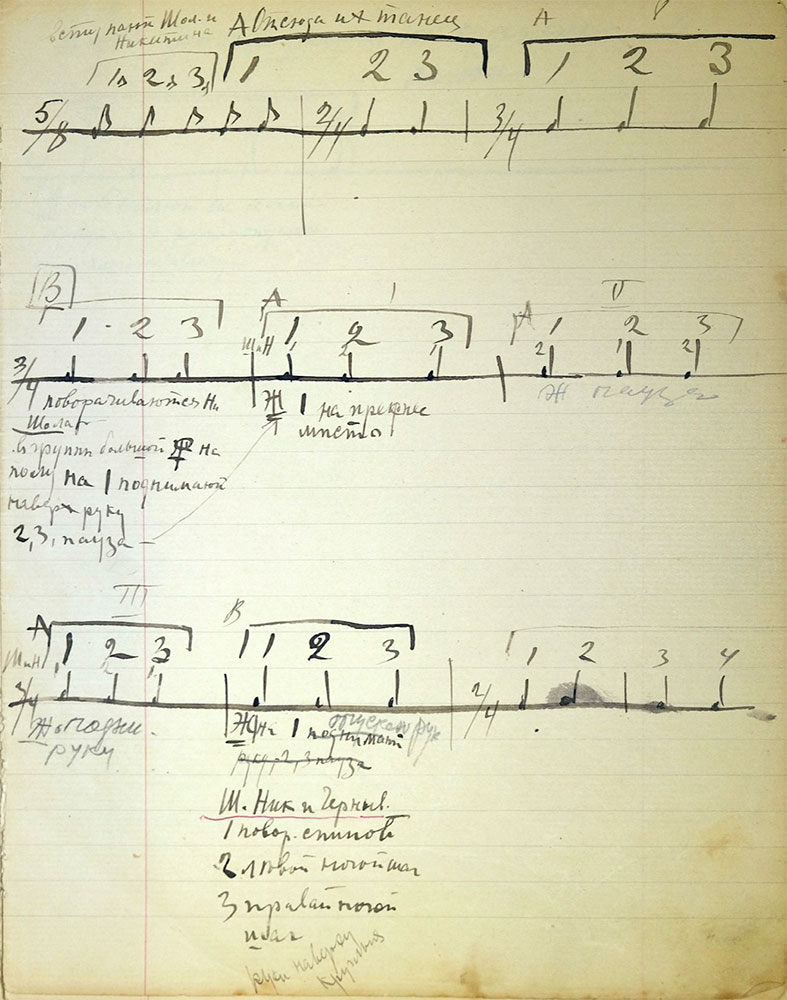 вступают Шол. и
Никитина
А Отсюда их танец
А
1 2 3
1 2 3
1 2 3
5/8 2/4 3/4
В
А I
А II
1 2 3
ШиН 1 2 3
1 2 3
1 2 1 2 1 2
3/4
поворачиваются Ни
Шолар
Ж 1 на прежнее
место
Ж пауза
в группе большой Ж на
полу на 1 поднимают
наверх руку
2, 3, пауза
III
А
В
ШиН 1 2 3
1 2 3
1 2 3 4
3/4 2/4
Ж подни.
руку
Ж на 1 поднимают
опускают рук
руку, 2, 3 пауза
Ш. Ник и Черныв.
1 повор. спиной
2 левой ногой шаг
3 правай ногой
шаг
руки наверху